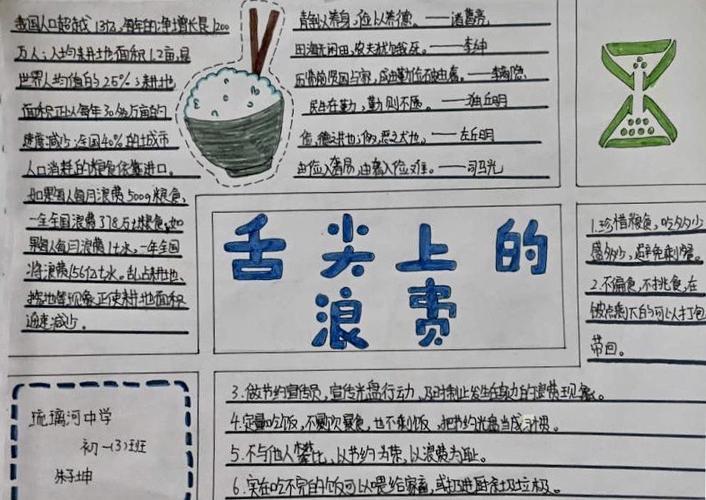 我国人口超过13亿,每年的净增长是1200
万人;人均耕地面积1.2亩,是
世界人均值的25%;耕地
面积正以每年30多万亩的
速度减少;全国40%的城市
人口消耗的粮食依靠进口。
如果每人每月浪费500g粮食,
一年全国浪费378万t粮食,如
果每人每月浪费1t水,一年全国
将浪费156亿t水。乱占耕地、
等现象正使耕地面积
减少。
静以养身,俭以养德。——诸葛亮
田海无闲田,农夫犹饿死。——李绅
历览前贤国与家,成由勤俭破由奢。——李商隐
民生在勤,勤则不匮。——丘明
俭,德之共也;侈,恶之大也。——左丘明
由俭入奢易,由奢入俭难。——司马光
舌尖上的
浪费
1.珍惜粮食,吃多少
盛多少,避免剩餐。
2.不偏食,不挑食,在
饭店剩下的可以打包
带回。
3.做节约宣传员,宣传光盘行动,及时制止发生在身边的浪费现象。
4.定量吃饭,不暴饮暴食,也不剩饭,把节约光盘当成习惯。
5.不与他人攀比,以节约为荣,以浪费为耻。
6.实在吃不完的饭可以喂给家畜,或扔进厨余垃圾。
琉璃河中学
初一(3)班
朱子坤